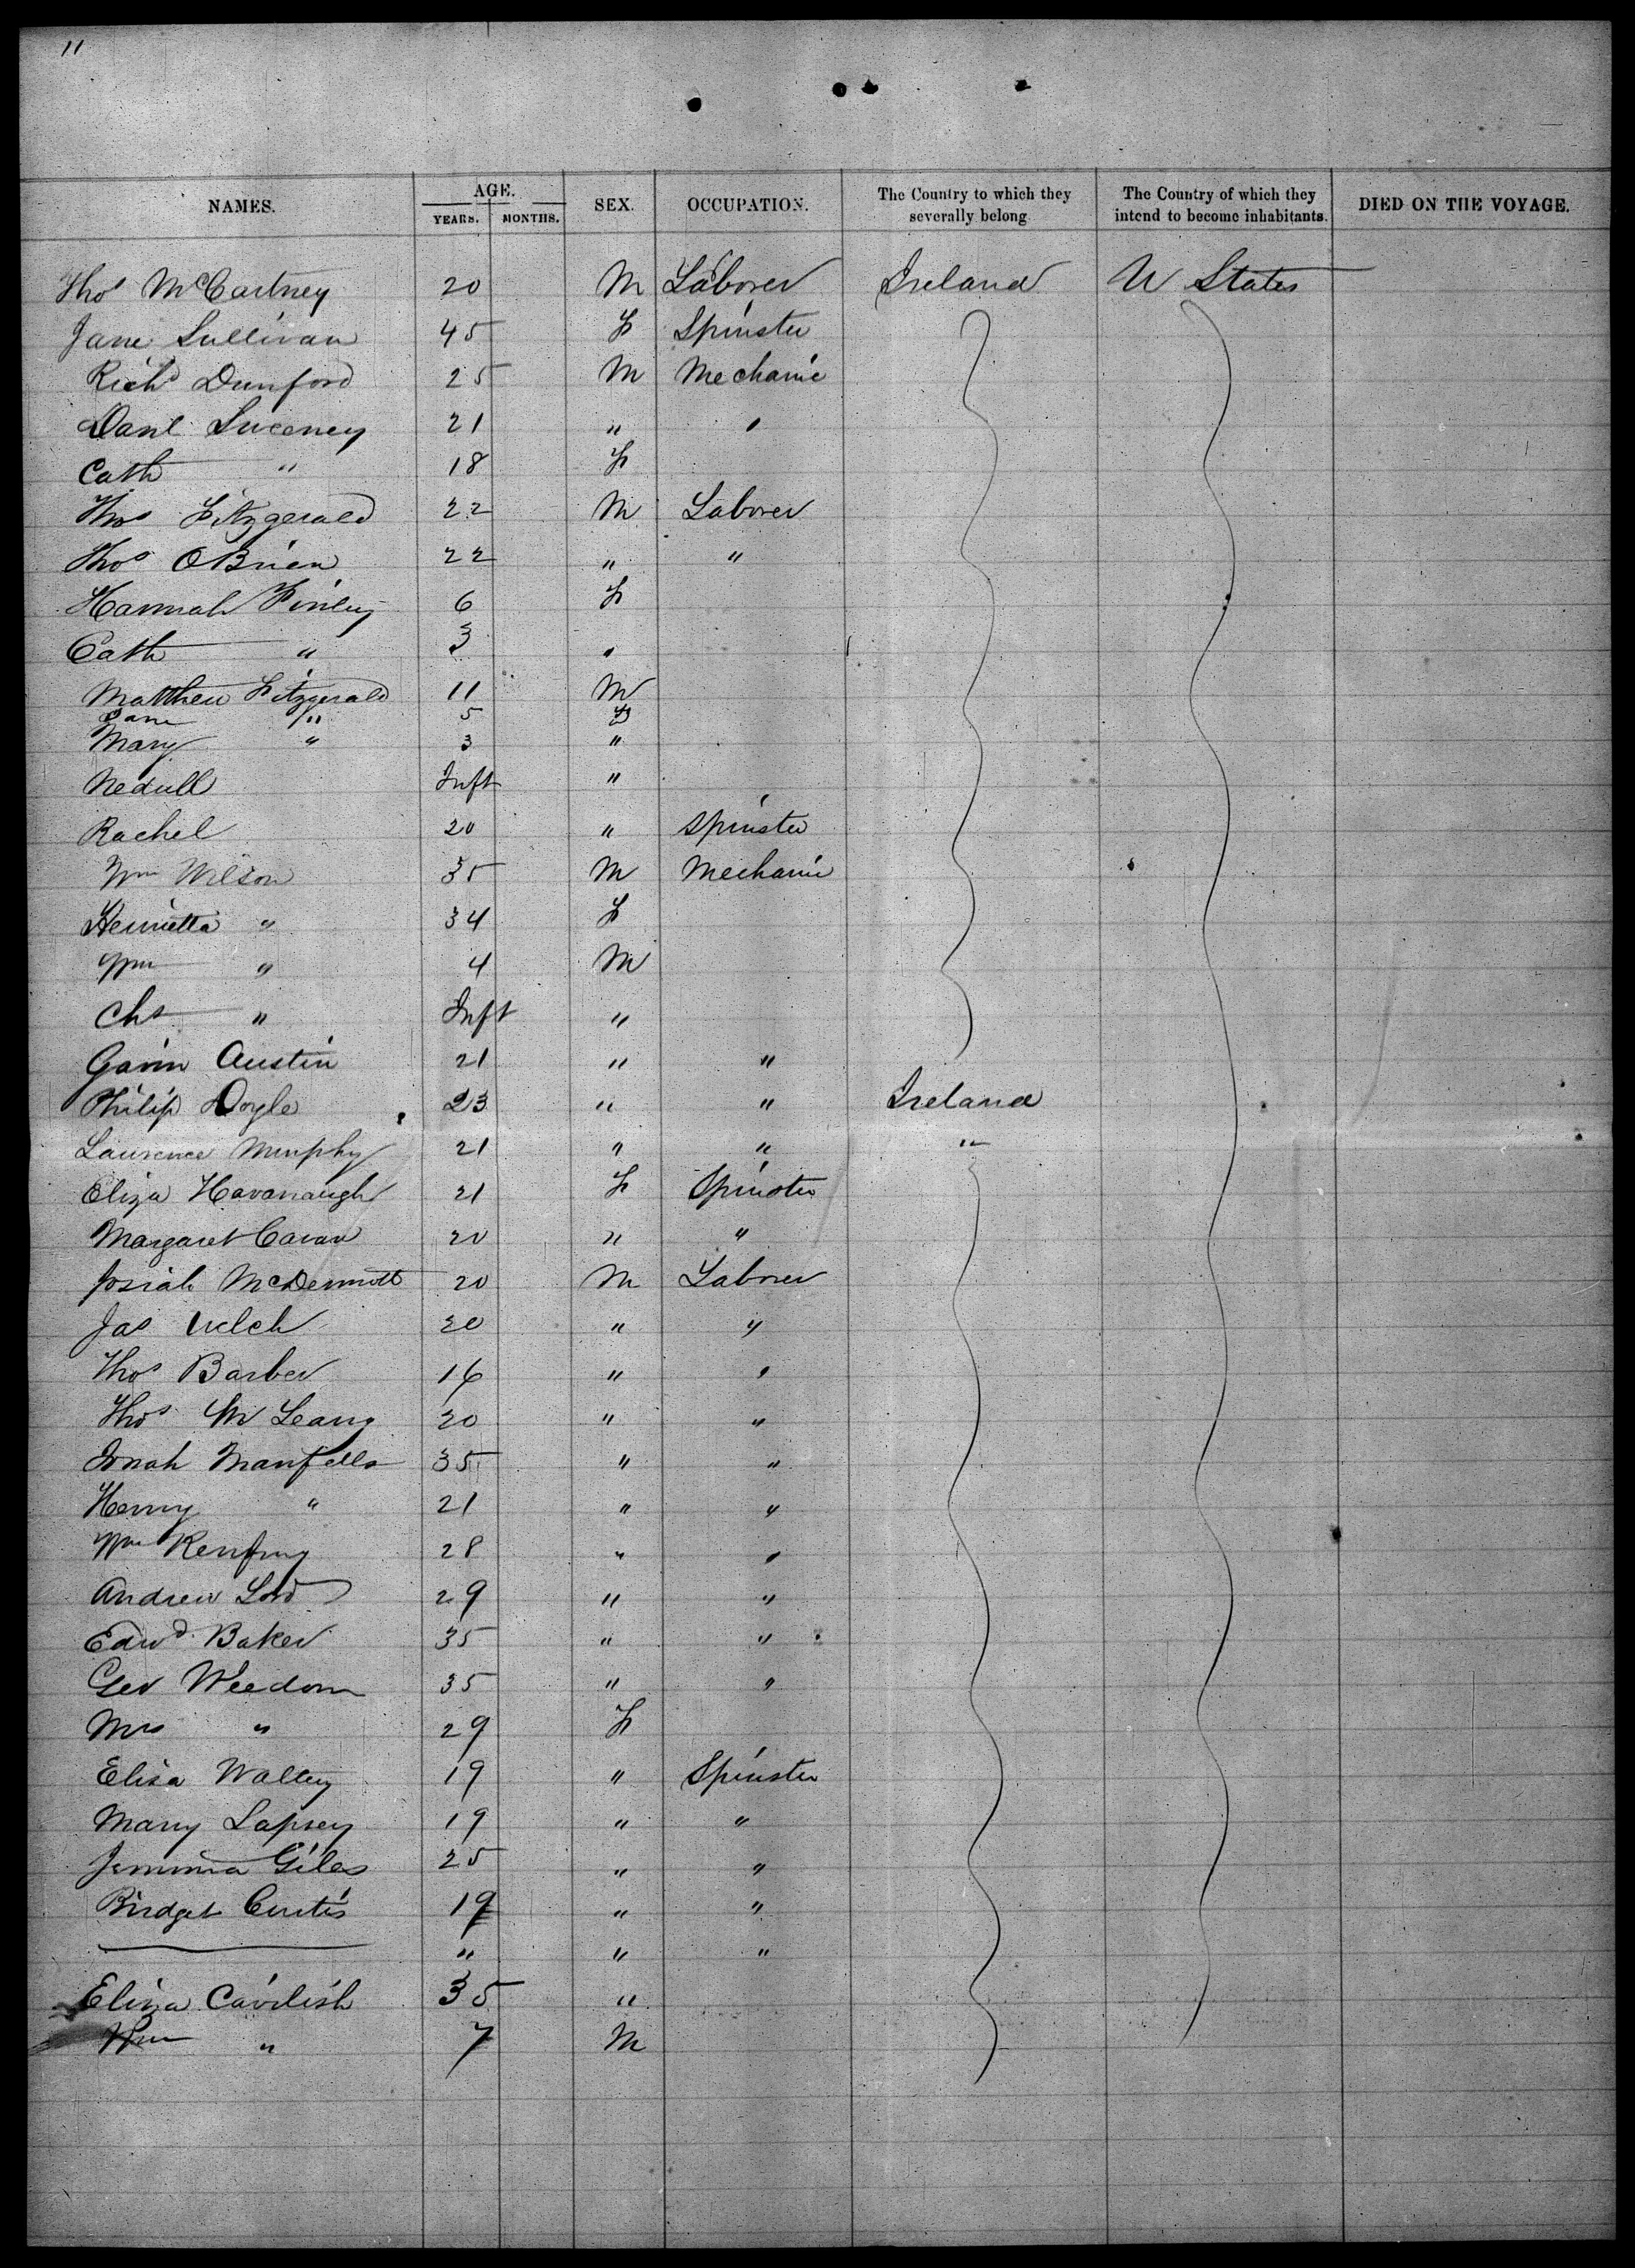 11
NAMES. AGE. YEARS. MONTHS. SEX. OCCUPATION. The Country to which they severally belong The Country of which they intend to become inhabitants. DIED ON THE VOYAGE.
Thos McCartney 20 M Laborer Ireland U States
Jane Sullivan 45 F Spinster
Richd Dunford 25 M Mechanic
Danl Sweeney 21 " "
Cath " 18 F
Thos Fitzgerald 22 M Laborer
Thos OBrien 22 " "
Hannah Finley 6 F
Cath " 3 "
Matthew Fitzgerald 11 M
Jane " 5 F
Mary " 3 "
Inft "
Rachel 20 " Spinster
Wm Wilson 35 M Mechanic
Henrietta " 34 F
Wm " 4 M
Chs " Inft "
Gavin Austin 21 " "
Philip Doyle 23 " " Ireland
Laurence Murphy 21 " " "
Eliza Kavanaugh 21 F Spinster
Margaret Cavan 20 " "
Josiah McDermott 20 M Laborer
Jas Welch 20 " "
Thos Barber 16 " "
Thos 20 " "
35 " "
Henry " 21 " "
Wm 28 " "
Andrew Lord 29 " "
Edwd Baker 35 " "
Geo Weedon 35 " "
Mrs " 29 F
Elisa 19 " Spinster
Mary Lapsey 19 " "
Jemima Giles 25 " "
Bridget Curtis 19 " "
" " "
Eliza Cavilish 35 "
Wm " 7 M